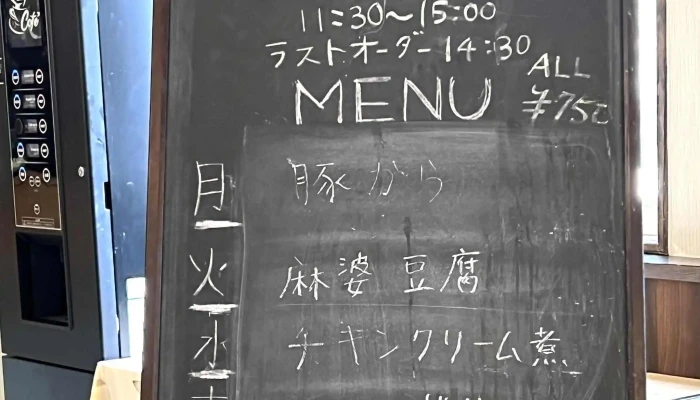 Café
11:30〜15:00
ラストオーダー 14:30
MENU ALL ¥750
月 豚から
火 麻婆豆腐
水 チキンクリーム煮